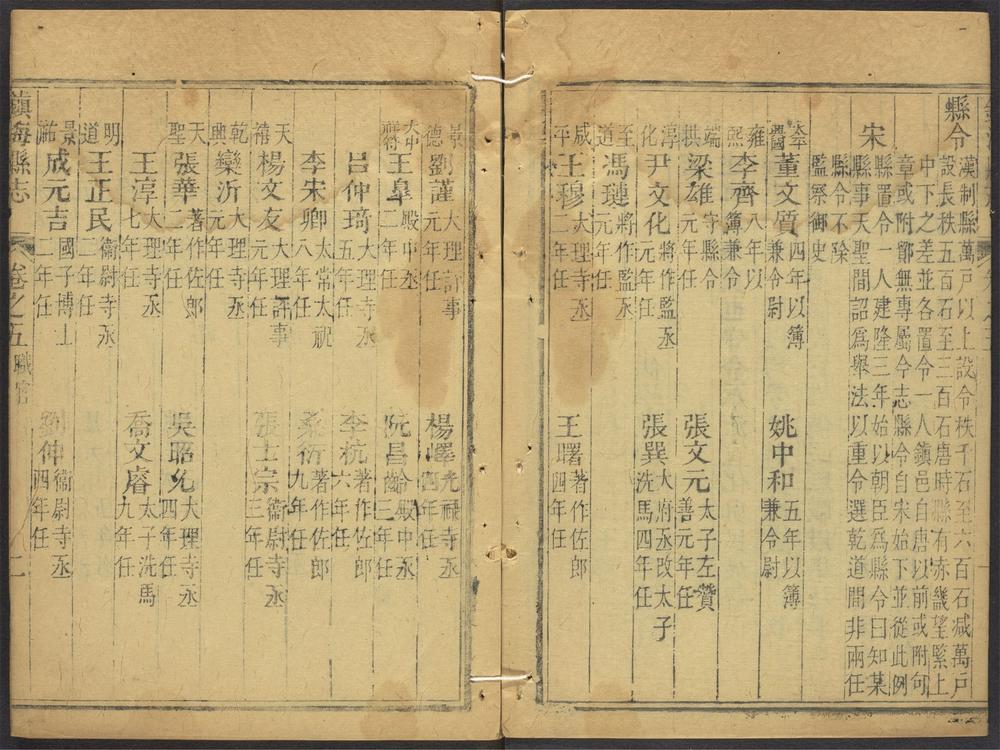 縣令
漢制縣萬戶以上設令秩千石至六百石减萬戶
設長秩五百石至三百石唐時縣有赤畿望緊上
中下之差並各置令一人鎭邑自唐以前或附句
章或附鄮無專屬令志縣令自宋始下並從此例
宋
縣置令一人建隆三年始以朝臣爲縣令曰知某
縣事天聖間詔爲舉法以重令選乾道間非兩任
縣令不除
監察御史
太平興國
董文質
四年以簿
兼令尉
姚中和
五年以簿
兼令尉
雍熙
李齊
八年以
簿兼令
端拱
梁雄
守縣令
元年任
張文元
太子左贊
善元年任
淳化
尹文化
將作監丞
元年任
張巽
大府丞改太子
洗馬四年任
至道
馮璉
將作監丞
元年任
咸平
王穆
大理寺丞
二年任
王曙
著作佐郎
四年任
景德
劉謹
大理評事
元年任
楊嶧
光祿寺丞
四年任
大中祥符
王臯
殿中丞
二年任
阮昌齡
殿中丞
三年任
呂仲琦
大理寺丞
五年任
李杭
著作佐郎
六年任
李宋卿
太常太祝
八年任
著作佐郎
九年任
天禧
楊文友
大理評事
元年任
張士宗
衞尉寺丞
三年任
乾興
欒沂
大理寺丞
元年任
天聖
張華
著作佐郎
二年任
吳昭允
大理寺丞
四年任
王淳
大理寺丞
七年任
喬文睿
太子洗馬
九年任
明道
王正民
衞尉寺丞
二年任
景祐
成元吉
國子博士
二年任
劉仲
衞尉寺丞
四年任
鎭海縣志
卷之五
職官
二